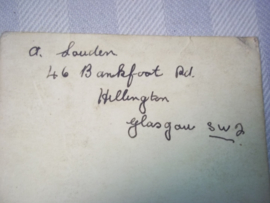 A. Louden
46 Bankfoot Rd.
Hillington
Glasgow SW2